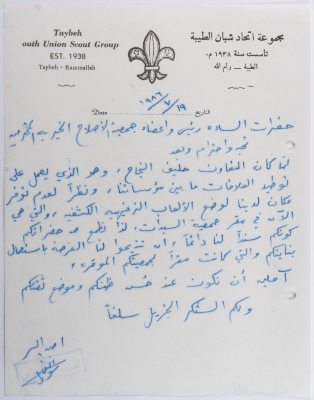 Taybeh
outh Union Scout Group
EST. 1938
Taybeh - Ramallah
مجموعة اتحاد شبان الطيبة
تأسست سنة ١٩٣٨ م.
الطيبة - رام الله
Date ١٩٨٦/٧/١٩ التاريخ
حضرات السادة رئيس وأعضاء جمعية الاصلاح الخيرية المحترمين
تحية واحترام وبعد
لما كان التعاون حليف النجاح، وهو الذي يعمل على
توطيد العلاقات ما بين مؤسساتنا، ونظراً لعدم توفر
مكان لدينا لوضع الألعاب الترفيهية الكشفية، والتي هي
الآن في مقر جمعية السيدات. لذا نطمع من حضراتكم
كونكم سنداً لنا دائماً، أن تتيحوا لنا الفرصة باستعمال
بنايتكم والتي كانت مقراً لجمعيتكم الموقرة.
آملين أن نكون عند حسن ظنكم وموضع ثقتكم
ولكم الشكر الجزيل سلفاً
امين السر